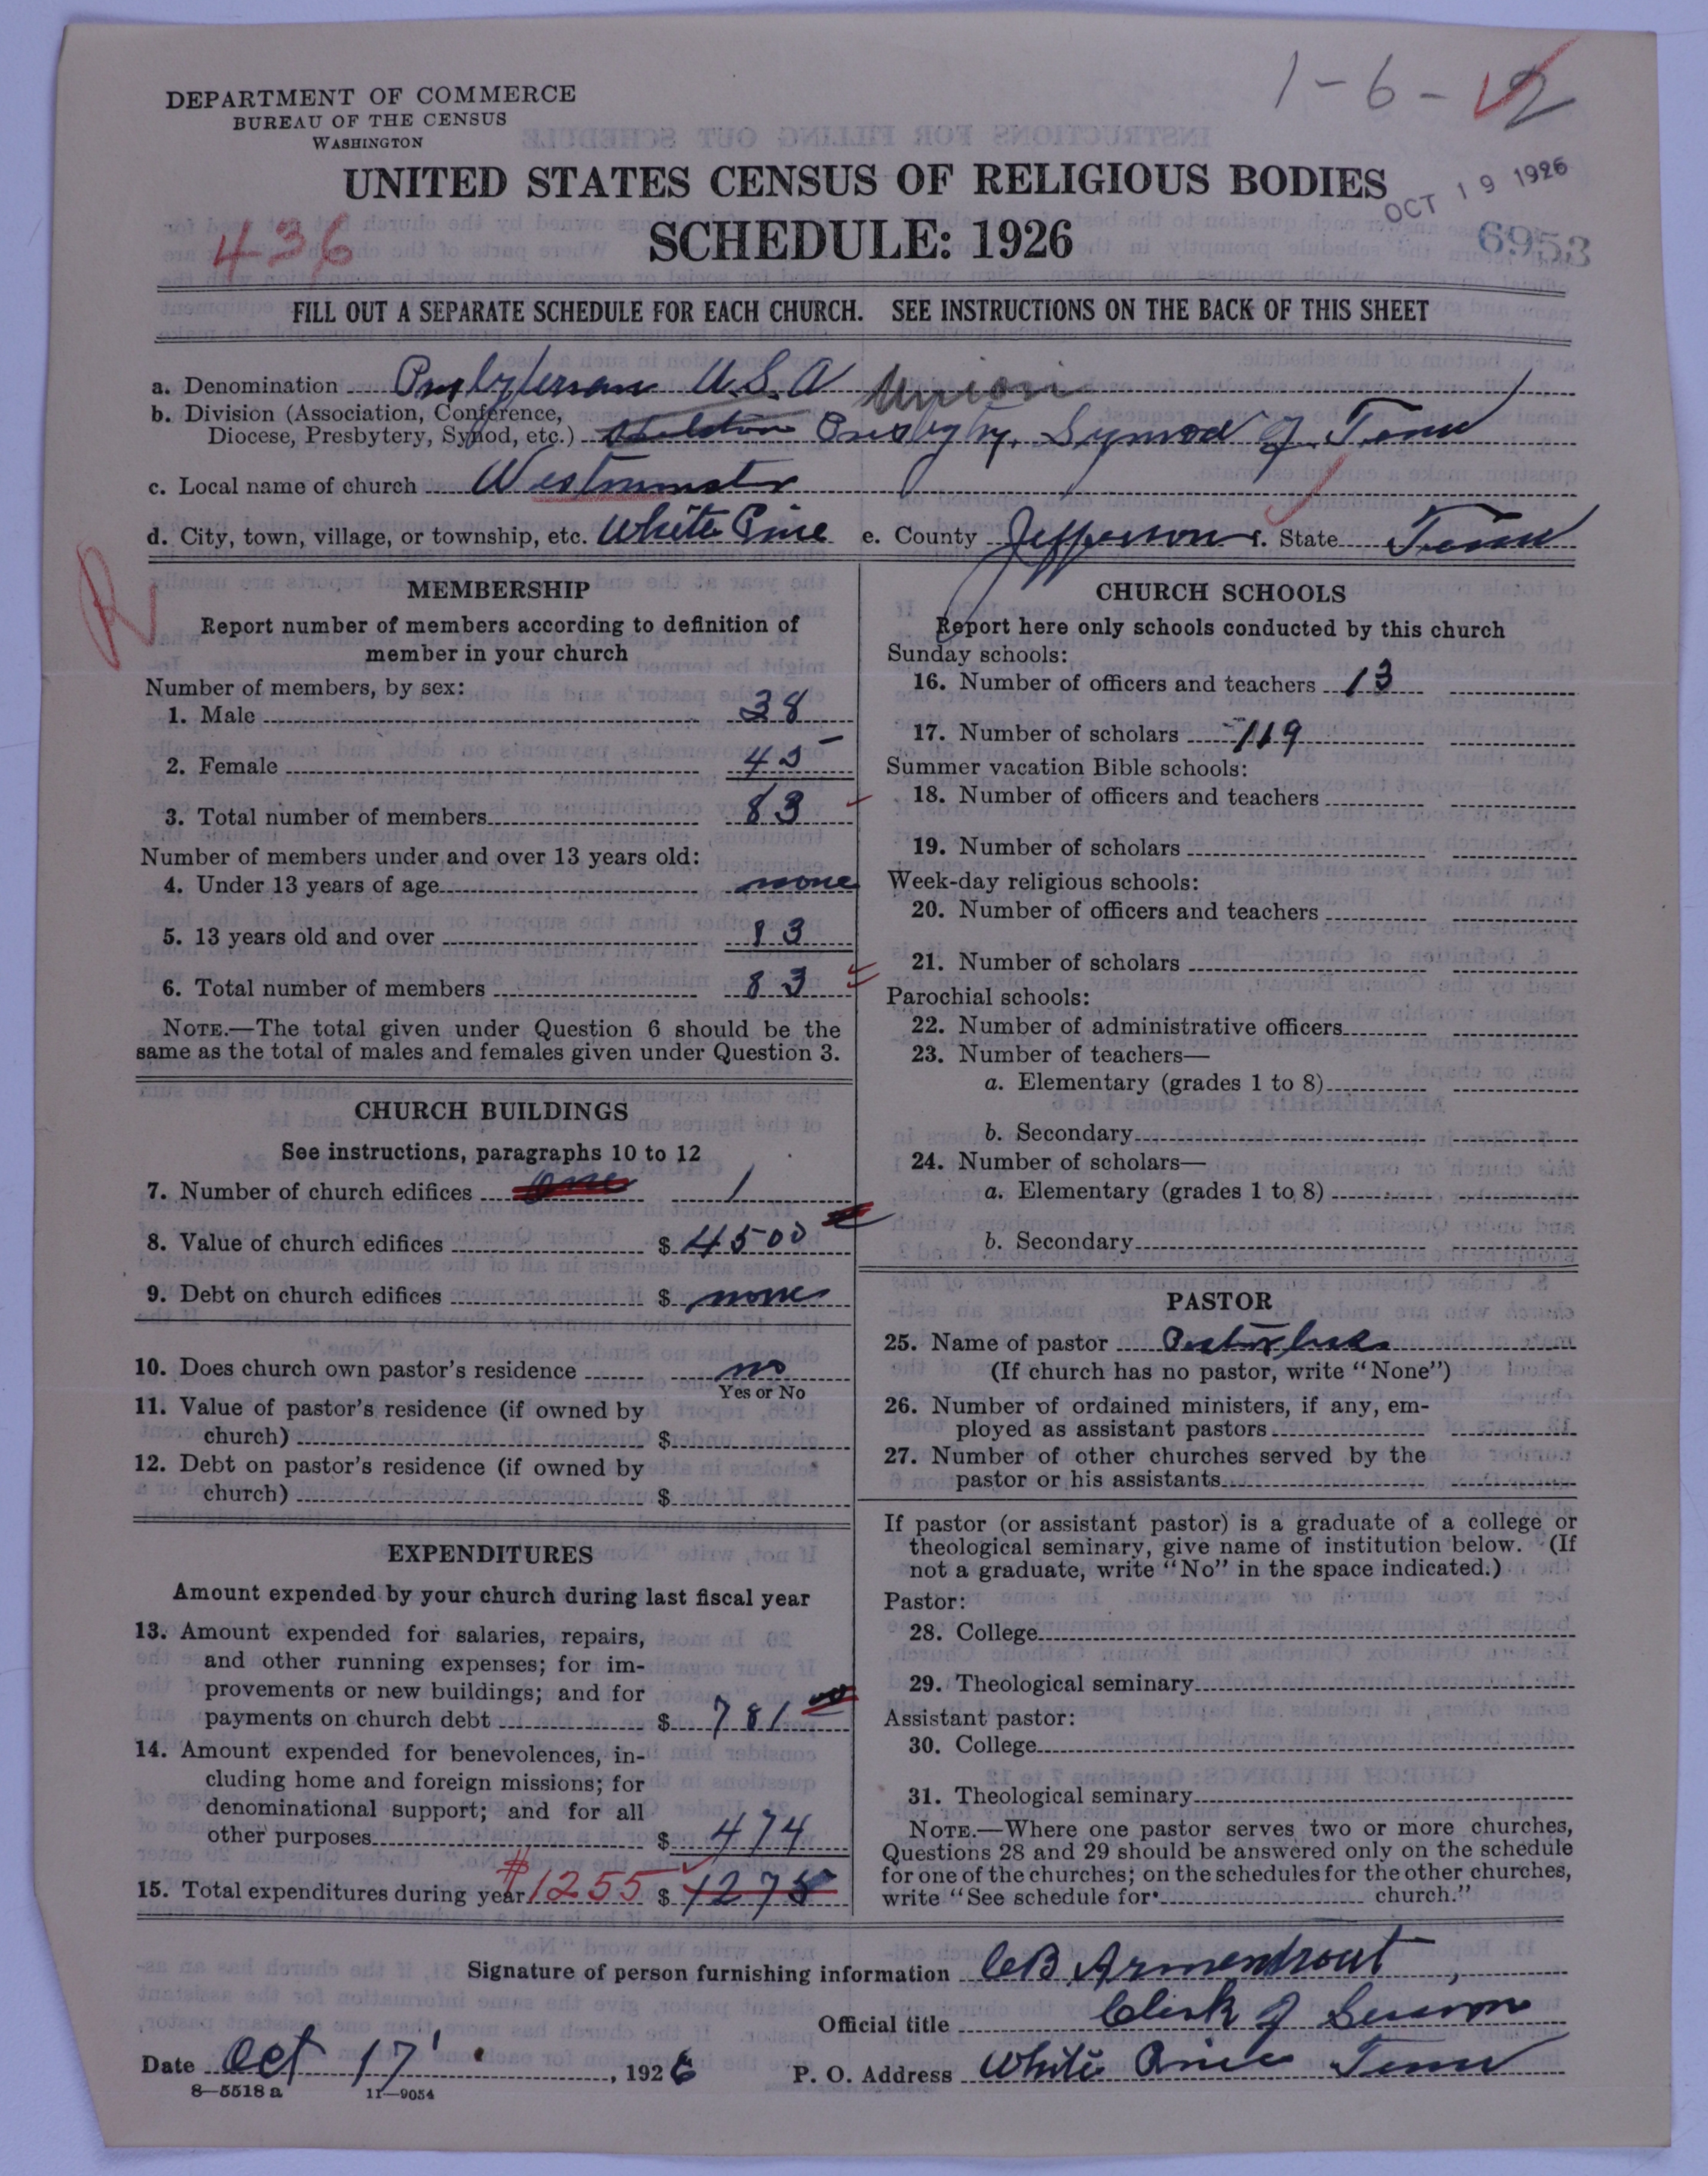 1-6-2
DEPARTMENT OF COMMERCE
BUREAU OF THE CENSUS
WASHINGTON
UNITED STATES CENSUS OF RELIGIOUS BODIES
OCT 19 1926
SCHEDULE: 1926
436
6953
FILL OUT A SEPARATE SCHEDULE FOR EACH CHURCH. SEE INSTRUCTIONS ON THE BACK OF THIS SHEET
a. Denomination Presbyterian U.S.A Union
b. Division (Association, Conference,
Diocese, Presbytery, Synod, etc.) Presbytry, Synod of Tenn
c. Local name of church Westminster
d. City, town, village, or township, etc. White Pine e. County Jefferson f. State Tenn
R
MEMBERSHIP
Report number of members according to definition of
member in your church
Number of members, by sex:
1. Male 38
2. Female 45
3. Total number of members 83
Number of members under and over 13 years old:
4. Under 13 years of age none
5. 13 years old and over 83
6. Total number of members 83
NOTE.—The total given under Question 6 should be the
same as the total of males and females given under Question 3.
CHURCH BUILDINGS
See instructions, paragraphs 10 to 12
7. Number of church edifices one 1
8. Value of church edifices $ 4500
9. Debt on church edifices $ none
10. Does church own pastor's residence no
Yes or No
11. Value of pastor's residence (if owned by
church) $
12. Debt on pastor's residence (if owned by
church) $
EXPENDITURES
Amount expended by your church during last fiscal year
13. Amount expended for salaries, repairs,
and other running expenses; for im-
provements or new buildings; and for
payments on church debt $ 781 00
14. Amount expended for benevolences, in-
cluding home and foreign missions; for
denominational support; and for all
other purposes $ 474
15. Total expenditures during year $1255 $ 1275
CHURCH SCHOOLS
Report here only schools conducted by this church
Sunday schools:
16. Number of officers and teachers 13
17. Number of scholars 119
Summer vacation Bible schools:
18. Number of officers and teachers
19. Number of scholars
Week-day religious schools:
20. Number of officers and teachers
21. Number of scholars
Parochial schools:
22. Number of administrative officers
23. Number of teachers—
a. Elementary (grades 1 to 8)
b. Secondary
24. Number of scholars—
a. Elementary (grades 1 to 8)
b. Secondary
PASTOR
25. Name of pastor
(If church has no pastor, write "None")
26. Number of ordained ministers, if any, em-
ployed as assistant pastors
27. Number of other churches served by the
pastor or his assistants
If pastor (or assistant pastor) is a graduate of a college or
theological seminary, give name of institution below. (If
not a graduate, write "No" in the space indicated.)
Pastor:
28. College
29. Theological seminary
Assistant pastor:
30. College
31. Theological seminary
NOTE.—Where one pastor serves two or more churches,
Questions 28 and 29 should be answered only on the schedule
for one of the churches; on the schedules for the other churches,
write "See schedule for church."
Signature of person furnishing information CB Armentrout,
Official title Clerk of Session
Date Oct 17, 1926 P. O. Address White Pine Tenn
8—5518 a 11—9054